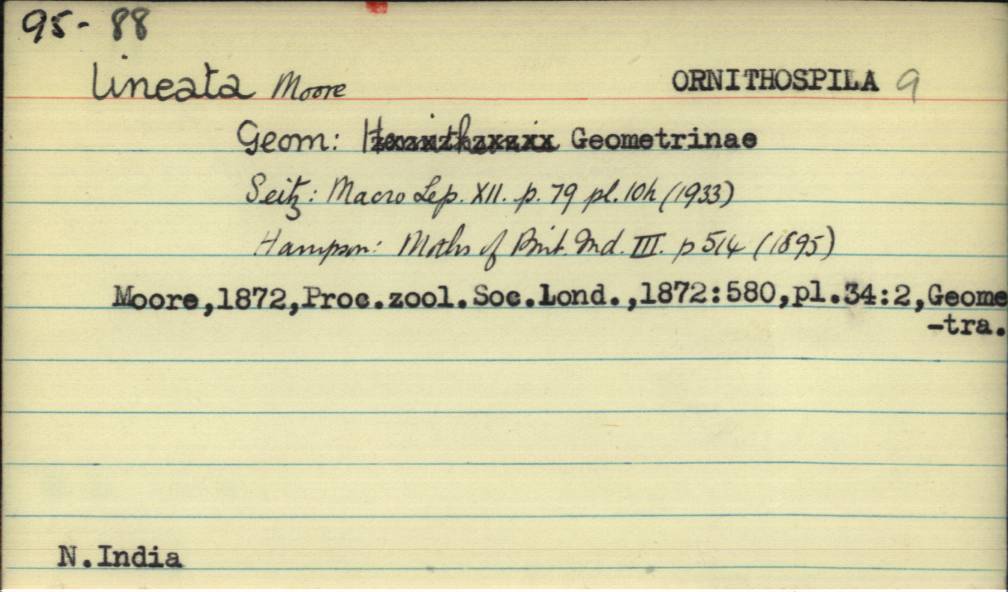 95-88
lineata Moore ORNITHOSPILA 9
Geom: Geometrinae
Seitz: Macro Lep. XII. p. 79 pl. 10h (1933)
Hampson: Moths of Brit. Ind. III. p 514 (1895)
Moore,1872,Proc.zool.Soc.Lond.,1872:580,pl.34:2,Geome
-tra.
N.India